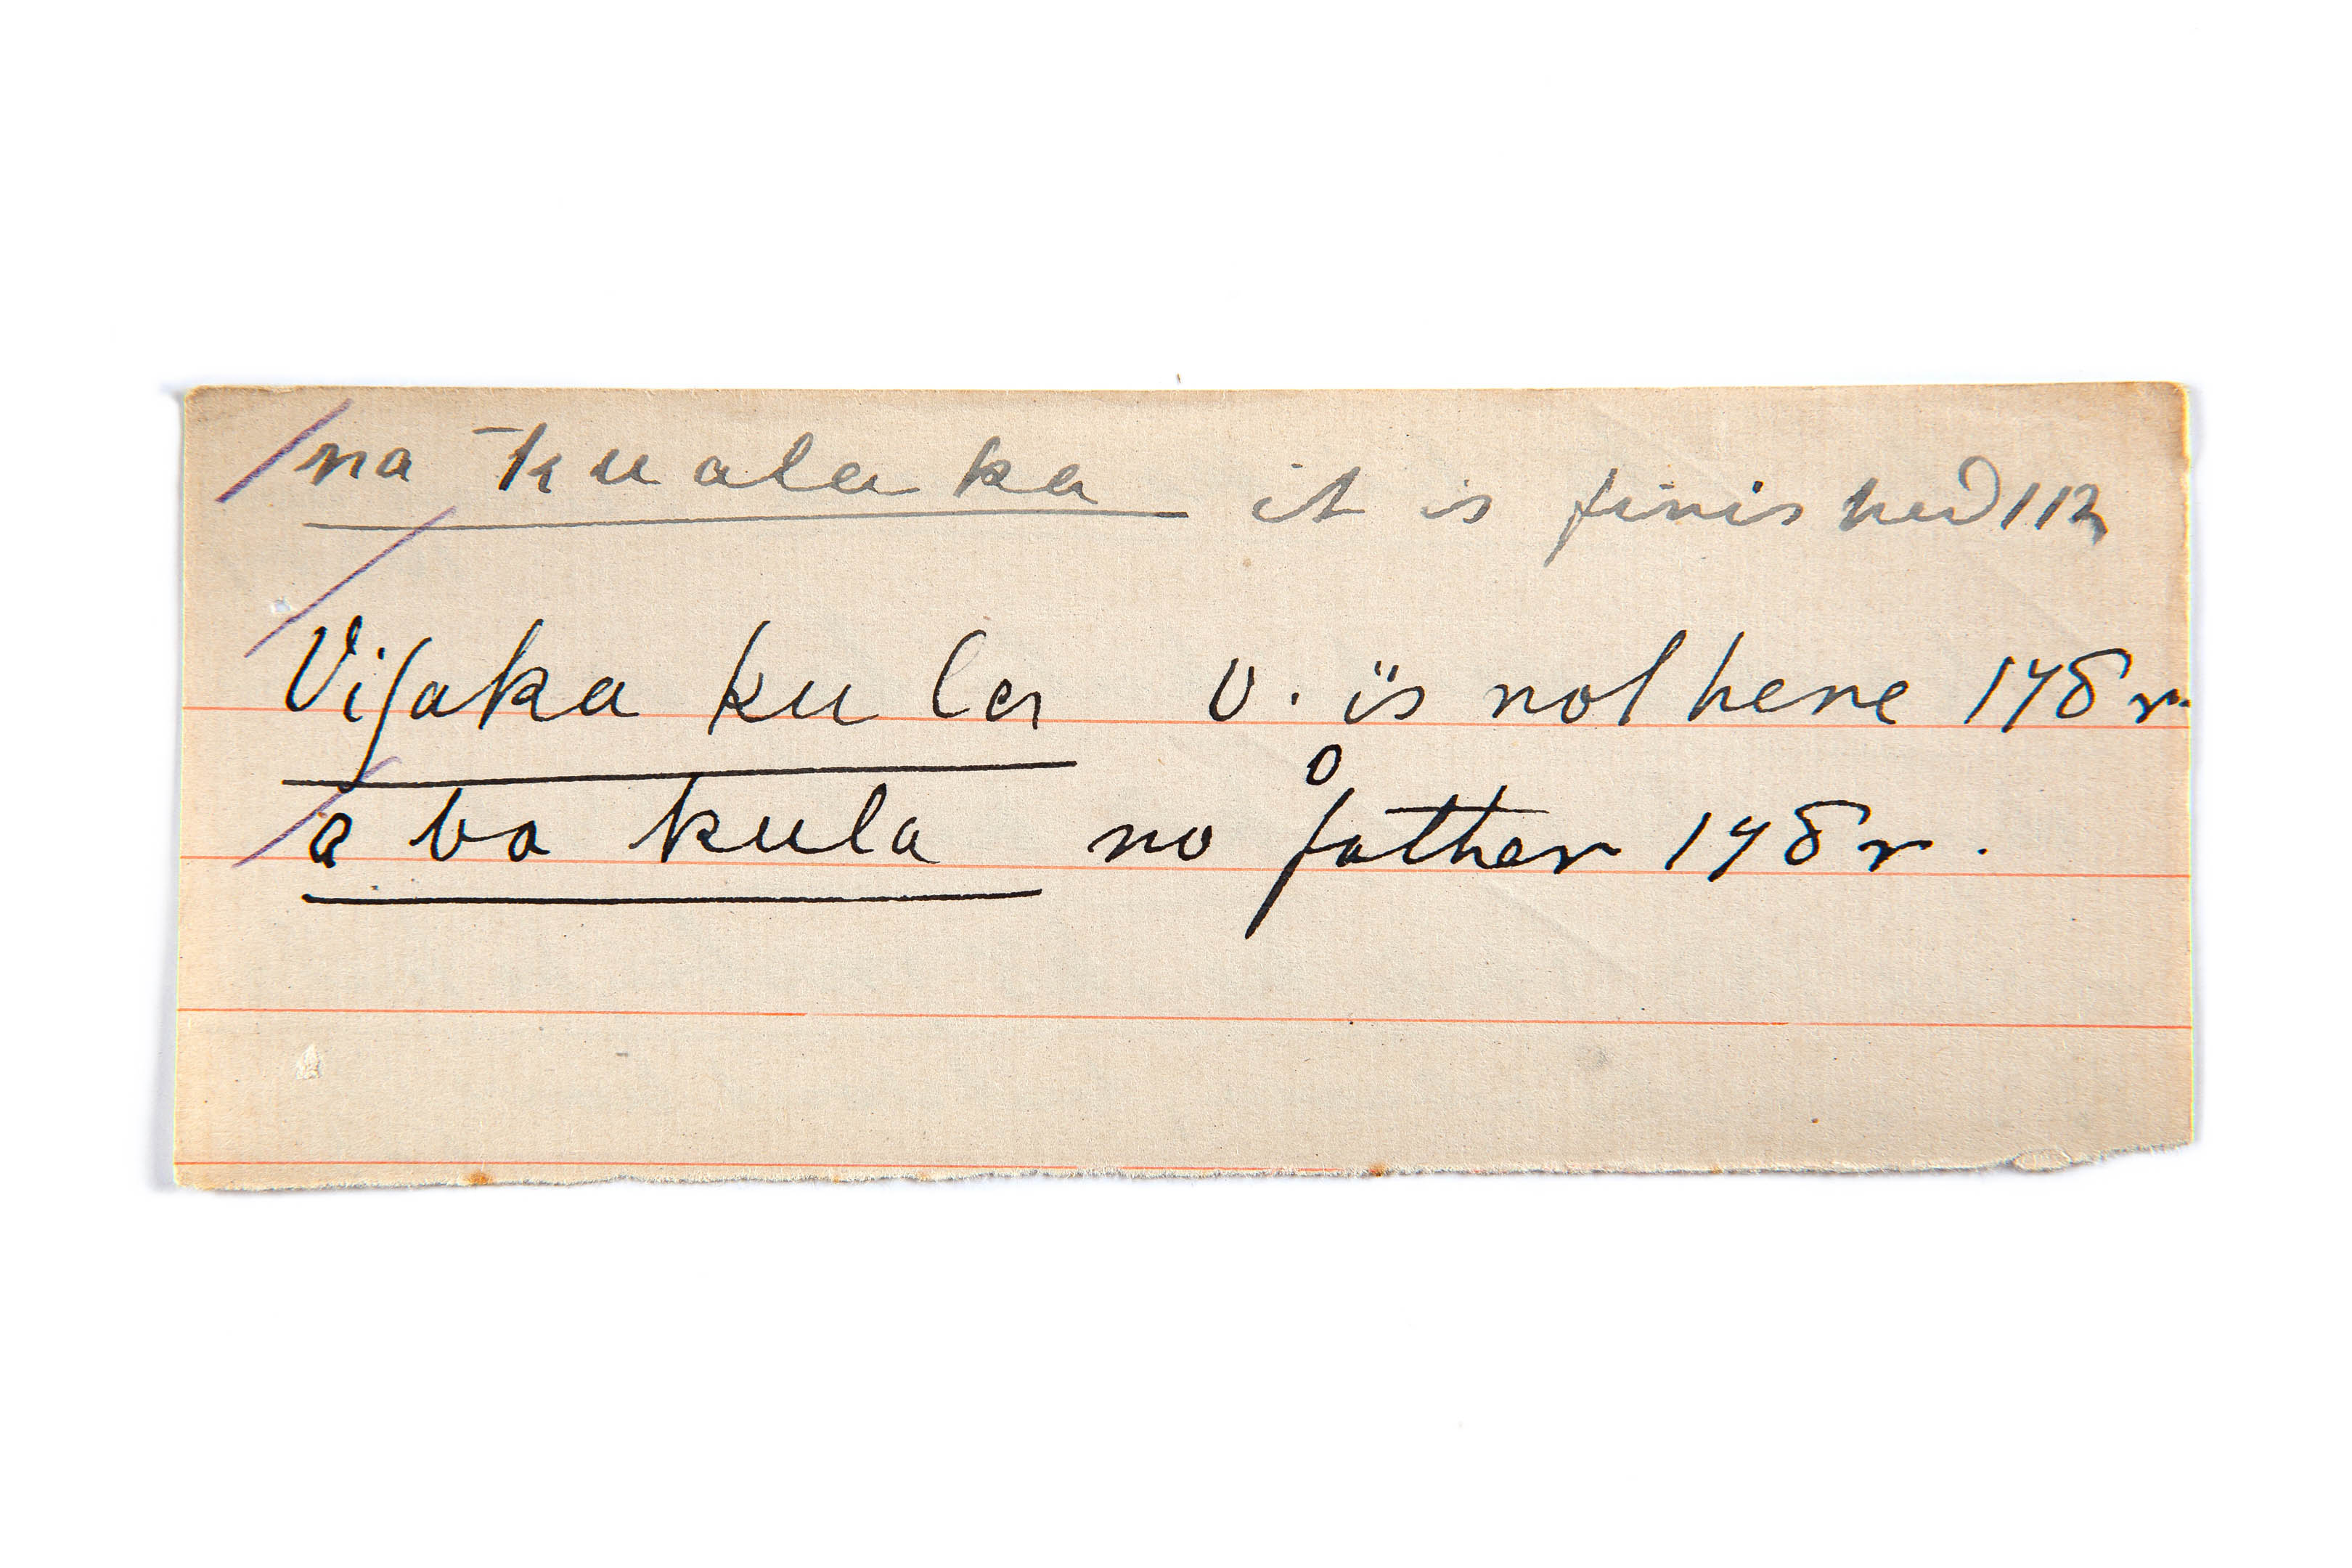 na kualaka it is finished 112
Vijaka kula V. is not here 178 r.
aba kula no father 178 r.